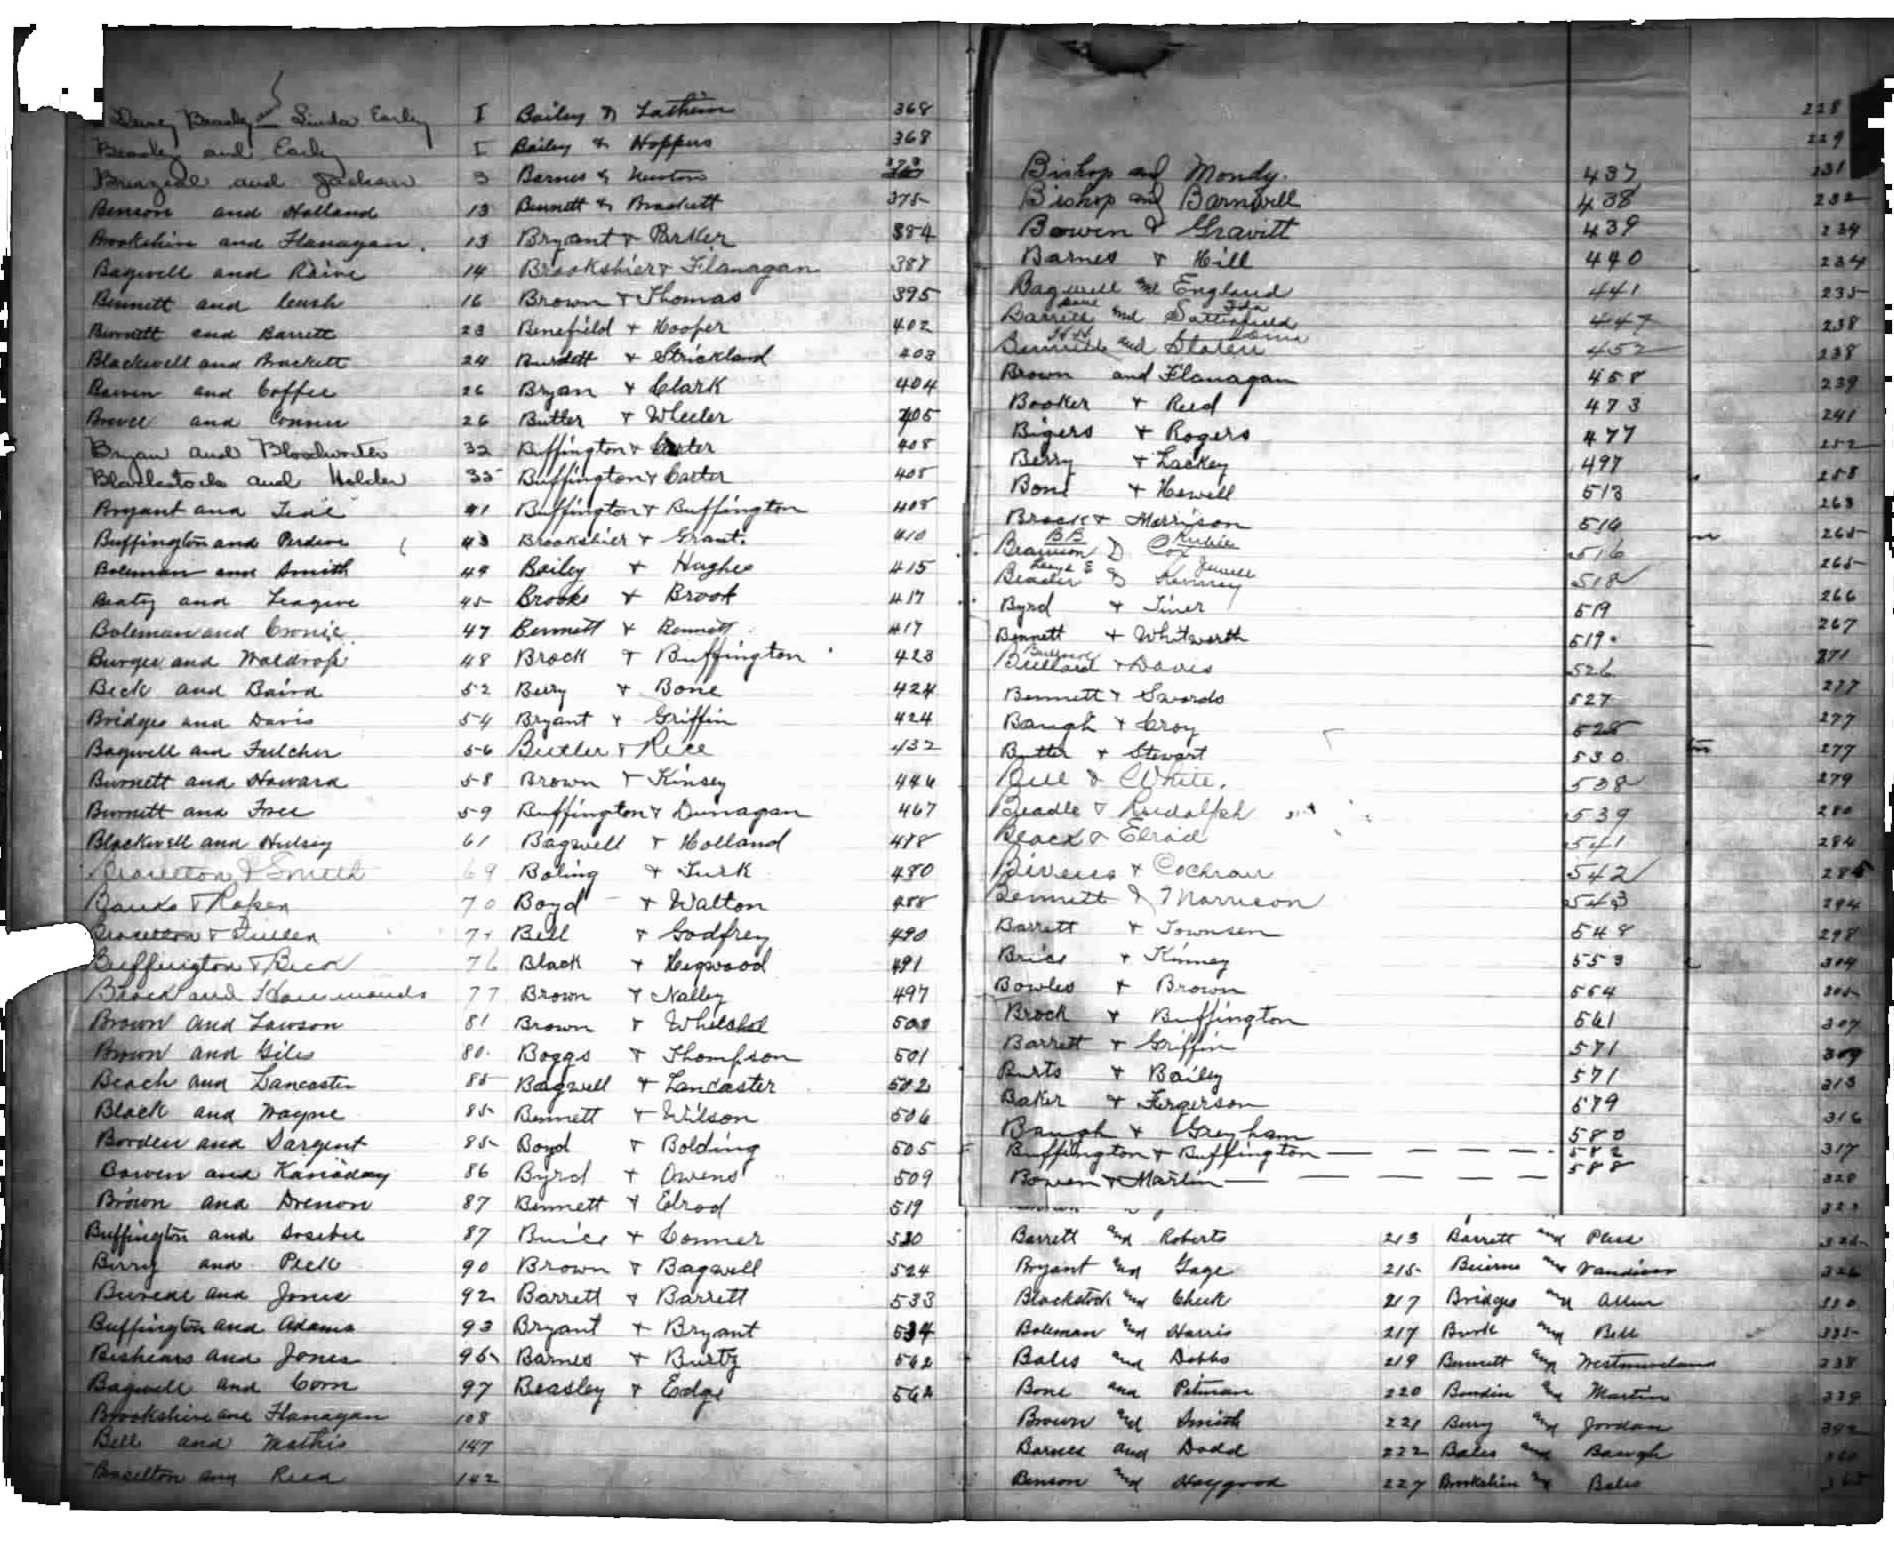 Dewey Beasley and Linda Early I
Beasley and Early I
Breazeale and Jackson 3
Benson and Holland 13
Brookshire and Flanagan 13
Bagwell and Raine 14
Bennett and 16
Burnett and Barrett 23
Blackwell and Brackett 24
Bowen and Coffee 26
and Conner 26
Bryan and Bloodworth 32
Blackstock and Holder 35
Bryant and 41
Buffington and Perdue 43
Boleman and Smith 49
Beaty and League 45
Boleman and Cronic 47
Burges and Waldrop 48
Beck and Baird 52
Bridges and Davis 54
Bagwell and Fulcher 56
Burnett and Howard 58
Burnett and Free 59
Blackwell and Hulsey 61
Braselton & Smith 69
Banks & Roper 70
Braselton &
Buffington & Reed 76
Brock and Hammonds 77
Brown and Lawson 81
Brown and Giles 80
Beach and Lancaster 85
Black and Wayne 85
Borden and Sargent 85
Bowen and Kanaday 86
Brown and Drenon 87
Buffington and Sosebee 87
Berry and Peck 90
and Jones 92
Buffington and Adams 93
Beshears and Jones 95
Bagwell and Corn 97
Brookshire and Flanagan 108
Bell and Mathis 147
Braselton and Reed 142
Bailey & Lathem 368
Bailey & Hoppers 368
Barnes & Newton 373
Bennett & Brackett 375
Bryant & Parker 384
Brookshier & Flanagan 387
Brown & Thomas 395
Benefield & Hooper 402
Burdett & Strickland 403
Bryan & Clark 404
Butler & Wheeler 405
Buffington & Carter 408
Buffington & Carter 408
Buffington & Buffington 408
Brookshier & Grant 410
Bailey & Hughes 415
Brooks & Brook 417
Bennett & Bennett 417
Brock & Buffington 423
Berry & Bone 424
Bryant & Griffin 424
Butler & Rice 432
Brown & Kinsey 446
Buffington & Dunagan 467
Bagwell & Holland 478
Boling & Turk 480
Boyd & Walton 488
Bell & Godfrey 490
Black & Hegwood 491
Brown & Nalley 497
Brown & Whelchel 500
Boggs & Thompson 501
Bagwell & Lancaster 502
Bennett & Wilson 506
Boyd & Bolding 505
Byrd & Owens 509
Bennett & Elrod 519
Buice & Conner 520
Brown & Bagwell 524
Barrett & Barrett 533
Bryant & Bryant 534
Barnes & Burtz 562
Beasley & Edge 562
Bishop and Mondy. 437
Bishop and Barnwell 438
Bowen & Gravitt 439
Barnes & Hill 440
Bagwell and England 441
Barrett and Satterfield 447
Bennett and 452
Brown and Flanagan 458
Booker & Reed 473
Bigers & Rogers 477
Berry & Lackey 497
Bone & Hewell 513
Brock & Morrison 514
B B Rubie
Brannon & Cox 516
Jewell
& Kenney 518
Byrd & Tiner 519
Bennett & Whitworth 519
Bullard & Davis 526
Bennett & Swords 527
Baugh & Croy 528
Butler & Stewart 530
Bell & White. 538
Beadle & Rudolph 539
Black & Elrod 541
Bivens & Cochran 542
Bennett & Morrison 543
Barrett & Townsen 548
Brice & Kinney 553
Bowles & Brown 554
Brock & Buffington 561
Barrett & Griffin 571
Burts & Bailey 571
Baker & Fergerson 579
Baugh & Greyham 580
Buffington & Buffington 582
Bowen & Martin 588
Barrett and Roberts 213
Bryant and Gage 215
Blackstock and Cheek 217
Boleman and Harris 217
Bales and Dobbs 219
Bone and Pitman 220
Brown and Smith 221
Barnes and Dodd 222
Benson and Haygood 227
Barrett and Pless
and Vandiver 326
Bridges and Allen 330
Burk and Bell 335
Bennett and Westmoreland 338
and Martin 339
Berry and Jordan 342
Bales and Baugh 360
Brookshire and Bales 365
228
229
231
232
234
234
235
238
238
239
241
252
258
263
265
265
266
267
271
277
277
277
279
280
284
285
294
298
304
305
307
309
313
316
317
320